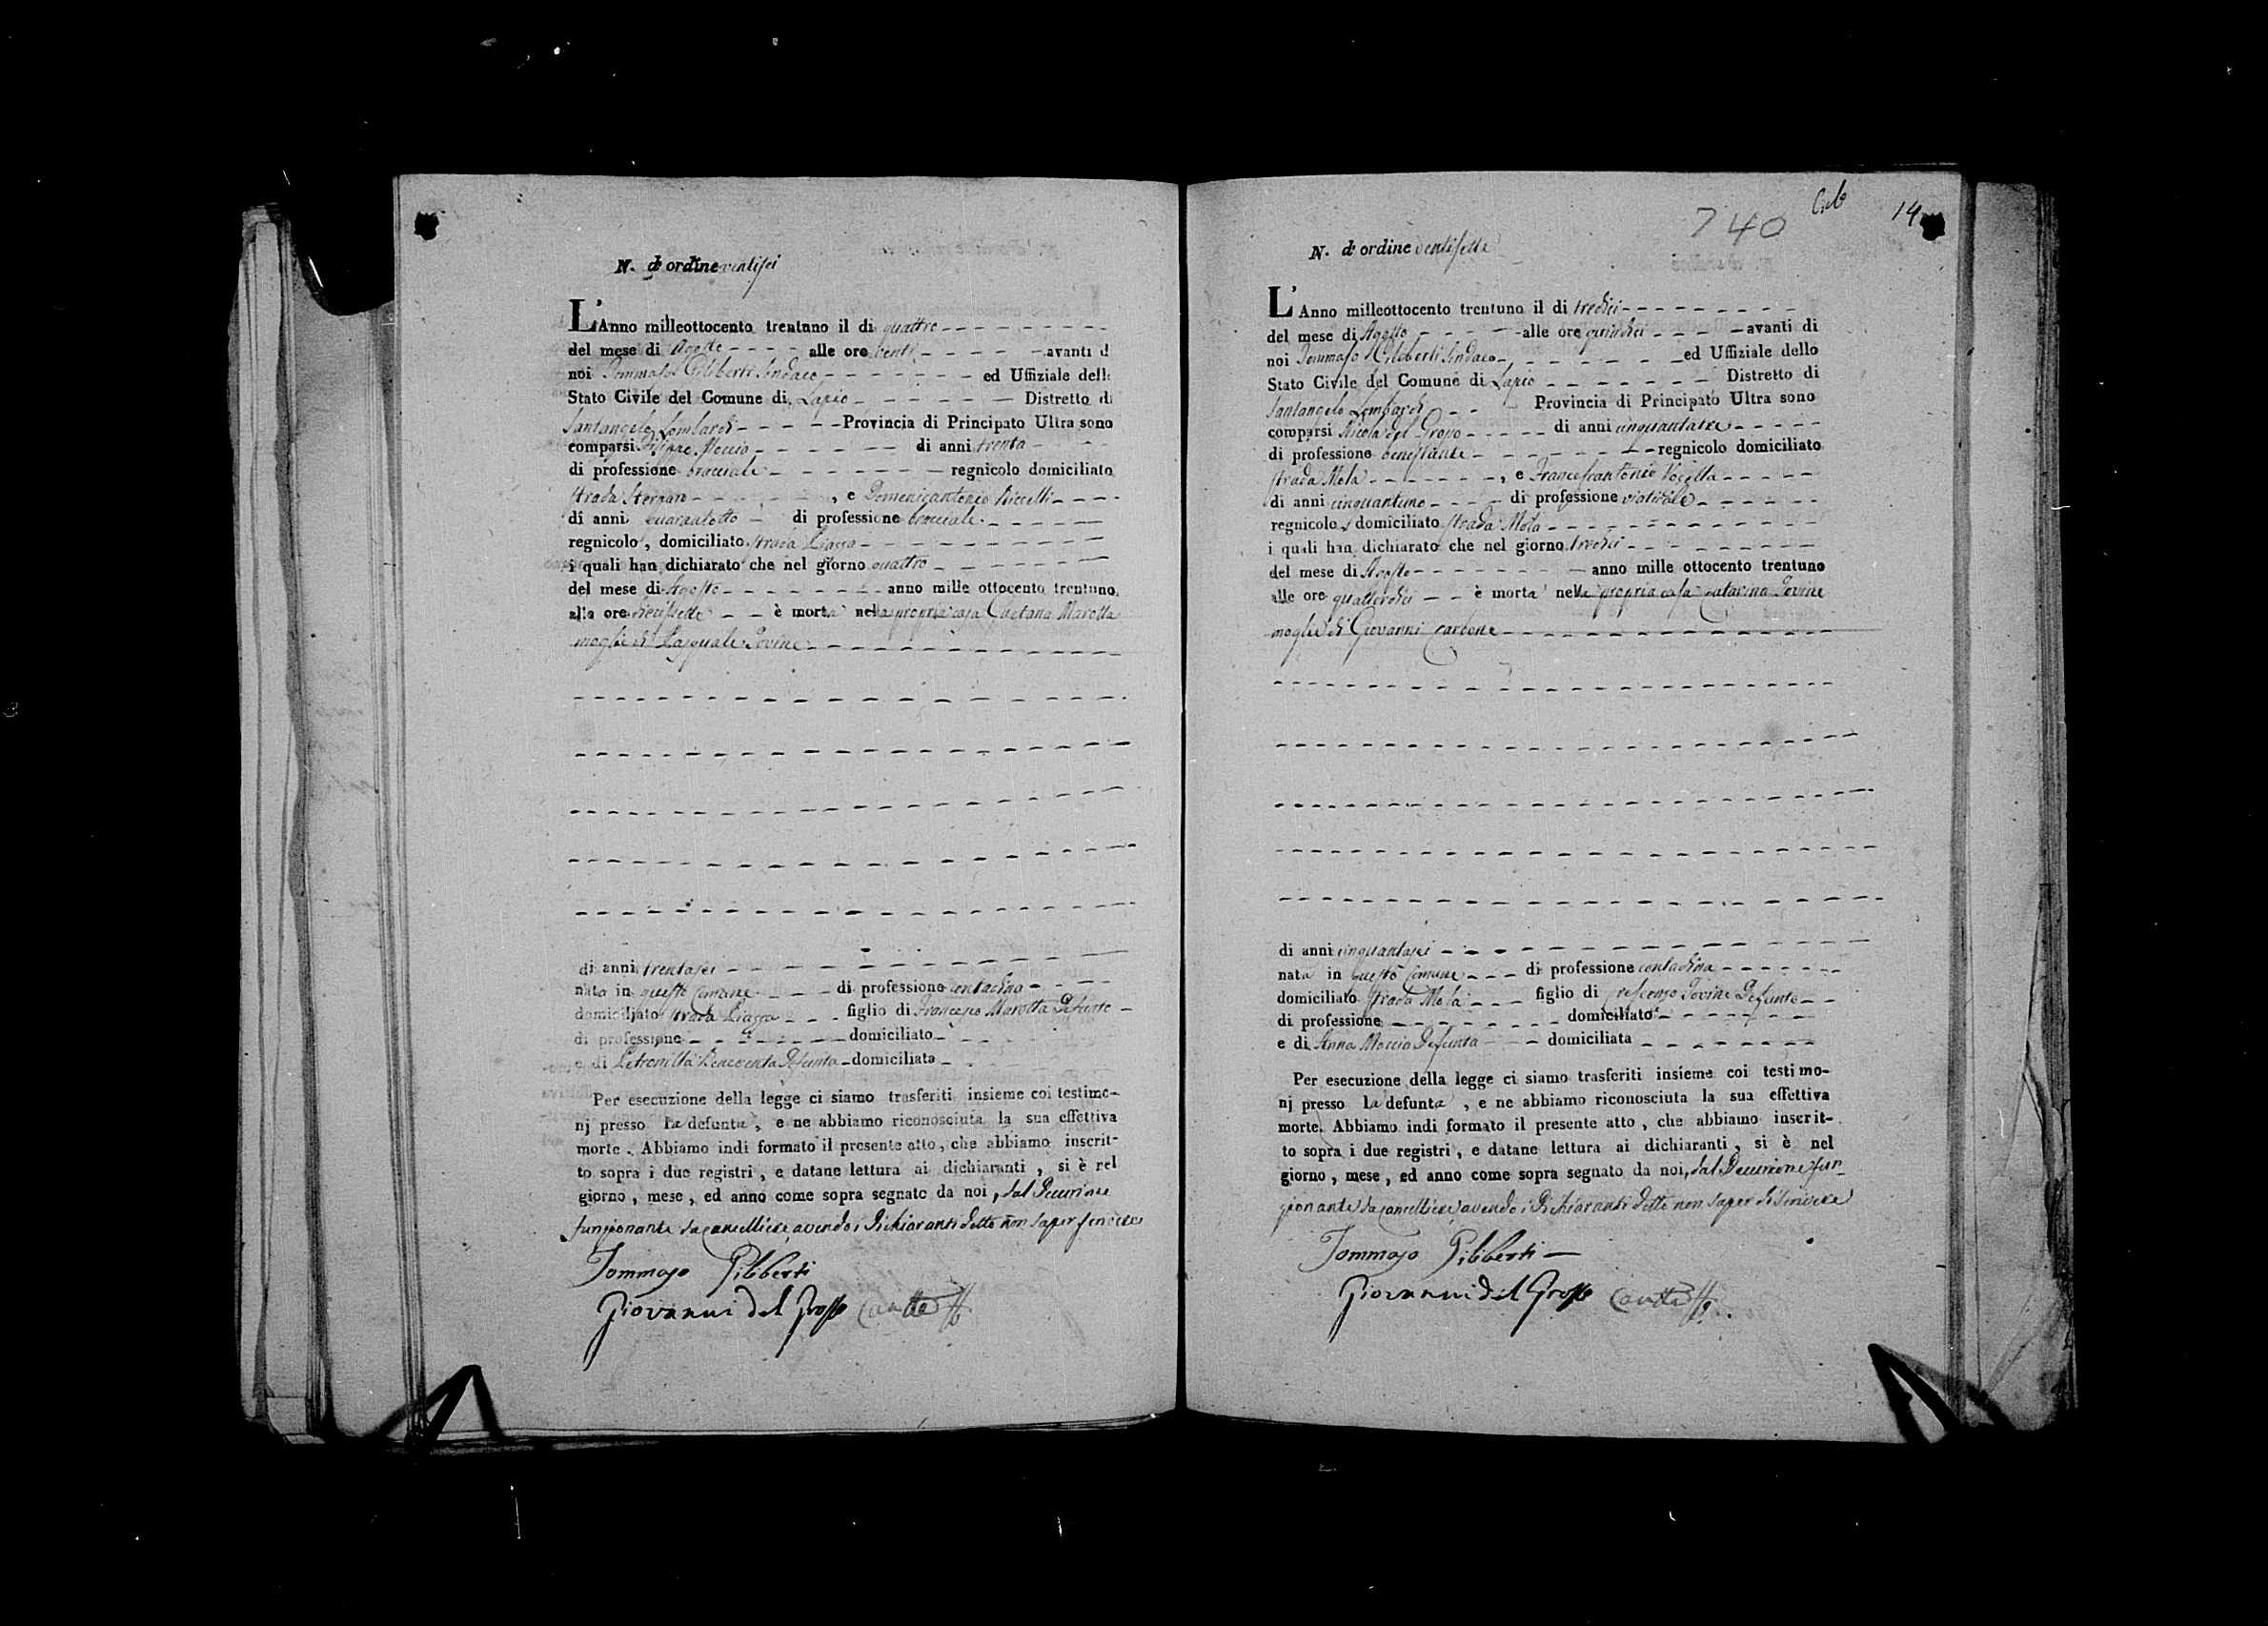 N. d'ordine ventisei
L'Anno milleottocento trentuno il di quattro
del mese di Agosto alle ore venti avanti d
noi Tommaso Piliberti Sindaco ed Uffiziale dell
Stato Civile del Comune di Lapio Distretto di
Santangelo Lombardi Provincia di Principato Ultra sono
comparsi Filippo Moccia di anni trenta
di professione bracciale regnicolo domiciliato
strada , e Domenicantonio
di anni quarantotto di professione bracciale
regnicolo, domiciliato strada Piazza
i quali han dichiarato che nel giorno quattro
del mese di Agosto anno mille ottocento trentuno
alle ore diecissette è morta nella propria casa Gaetana Marotta
moglie di Pasquale Iovine
di anni trentasei
nata in questo Comune di professione contadina
domiciliato strada Piazza figlio di Francesco Marotta Defunto
di professione domiciliato
e di Petronilla Benevento Defunta domiciliata
Per esecuzione della legge ci siamo trasferiti insieme coi testimo-
nj presso La defunta, e ne abbiamo riconosciuta la sua effettiva
morte. Abbiamo indi formato il presente atto, che abbiamo inscrit-
to sopra i due registri, e datane lettura ai dichiaranti, si è nel
giorno, mese, ed anno come sopra segnato da noi, dal Decurione
funzionante da Cancelliere, avendo i Dichiaranti detto non saper scrivere
Tommaso Piliberti
Giovanni del Grosso
740
14
N. d'ordine ventisette
L'Anno milleottocento trentuno il di tredici
del mese di Agosto alle ore quindici avanti di
noi Tommaso Piliberti Sindaco ed Uffiziale dello
Stato Civile del Comune di Lapio Distretto di
Santangelo Lombardi Provincia di Principato Ultra sono
comparsi Nicola del Grosso di anni cinquantatre
di professione benestante regnicolo domiciliato
strada Mela, e Francescantonio Vozella
di anni cinquantuno di professione viaticale
regnicolo, domiciliato strada Mela
i quali han dichiarato che nel giorno tredici
del mese di Agosto anno mille ottocento trentuno
alle ore quattordici è morta nella propria casa Catarina Iovine
moglie di Giovanni Carbone
di anni cinquantasei
nata in questo Comune di professione contadina
domiciliato strada Mela figlio di Crescenzo Iovine Defunto
di professione domiciliato
e di Anna Moccia Defunta domiciliata
Per esecuzione della legge ci siamo trasferiti insieme coi testimo-
nj presso La defunta, e ne abbiamo riconosciuta la sua effettiva
morte. Abbiamo indi formato il presente atto, che abbiamo inscrit-
to sopra i due registri, e datane lettura ai dichiaranti, si è nel
giorno, mese, ed anno come sopra segnato da noi, dal Decurione fun-
zionante da Cancelliere avendo i Dichiaranti detto non saper di scrivere
Tommaso Piliberti
Giovanni del Grosso